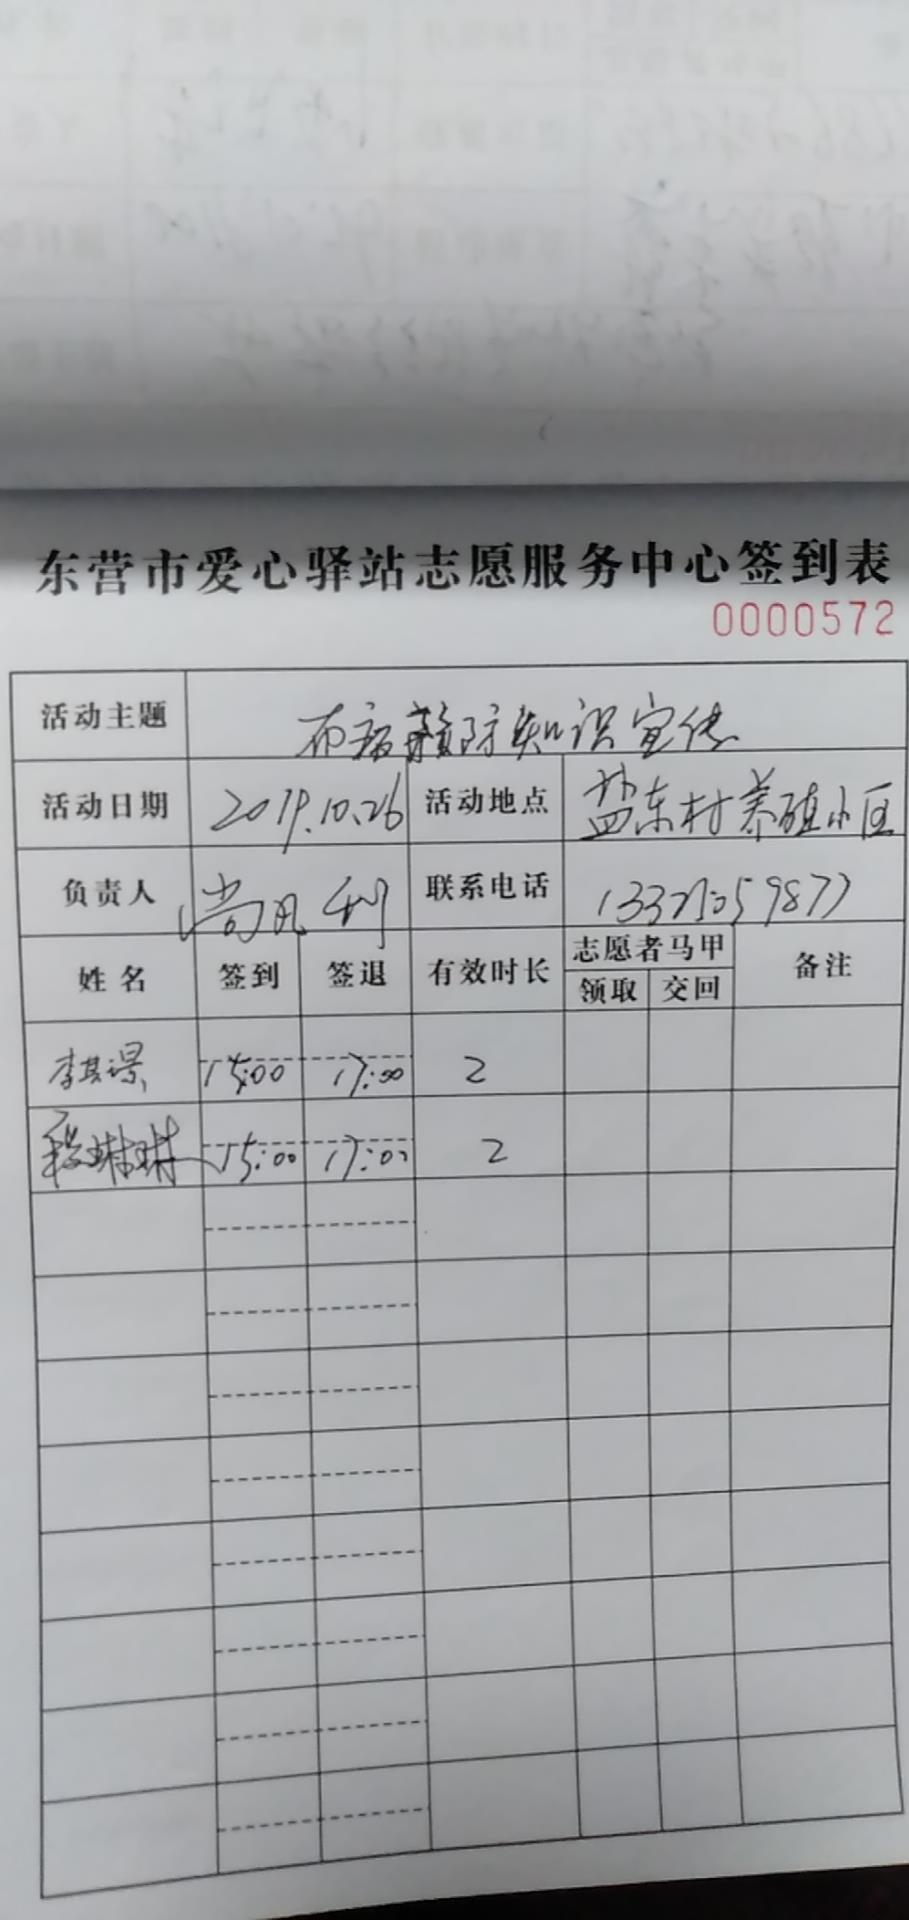 东营市爱心驿站志愿服务中心签到表
0000572
活动主题 布病预防知识宣传
活动日期 2019.10.26 活动地点 盐东村养殖小区
负责人 尚凡利 联系电话
姓名 签到 签退 有效时长 志愿者马甲 备注
领取 交回
李其璟 15:00 17:00 2
段琳琳 15:00 17:00 2